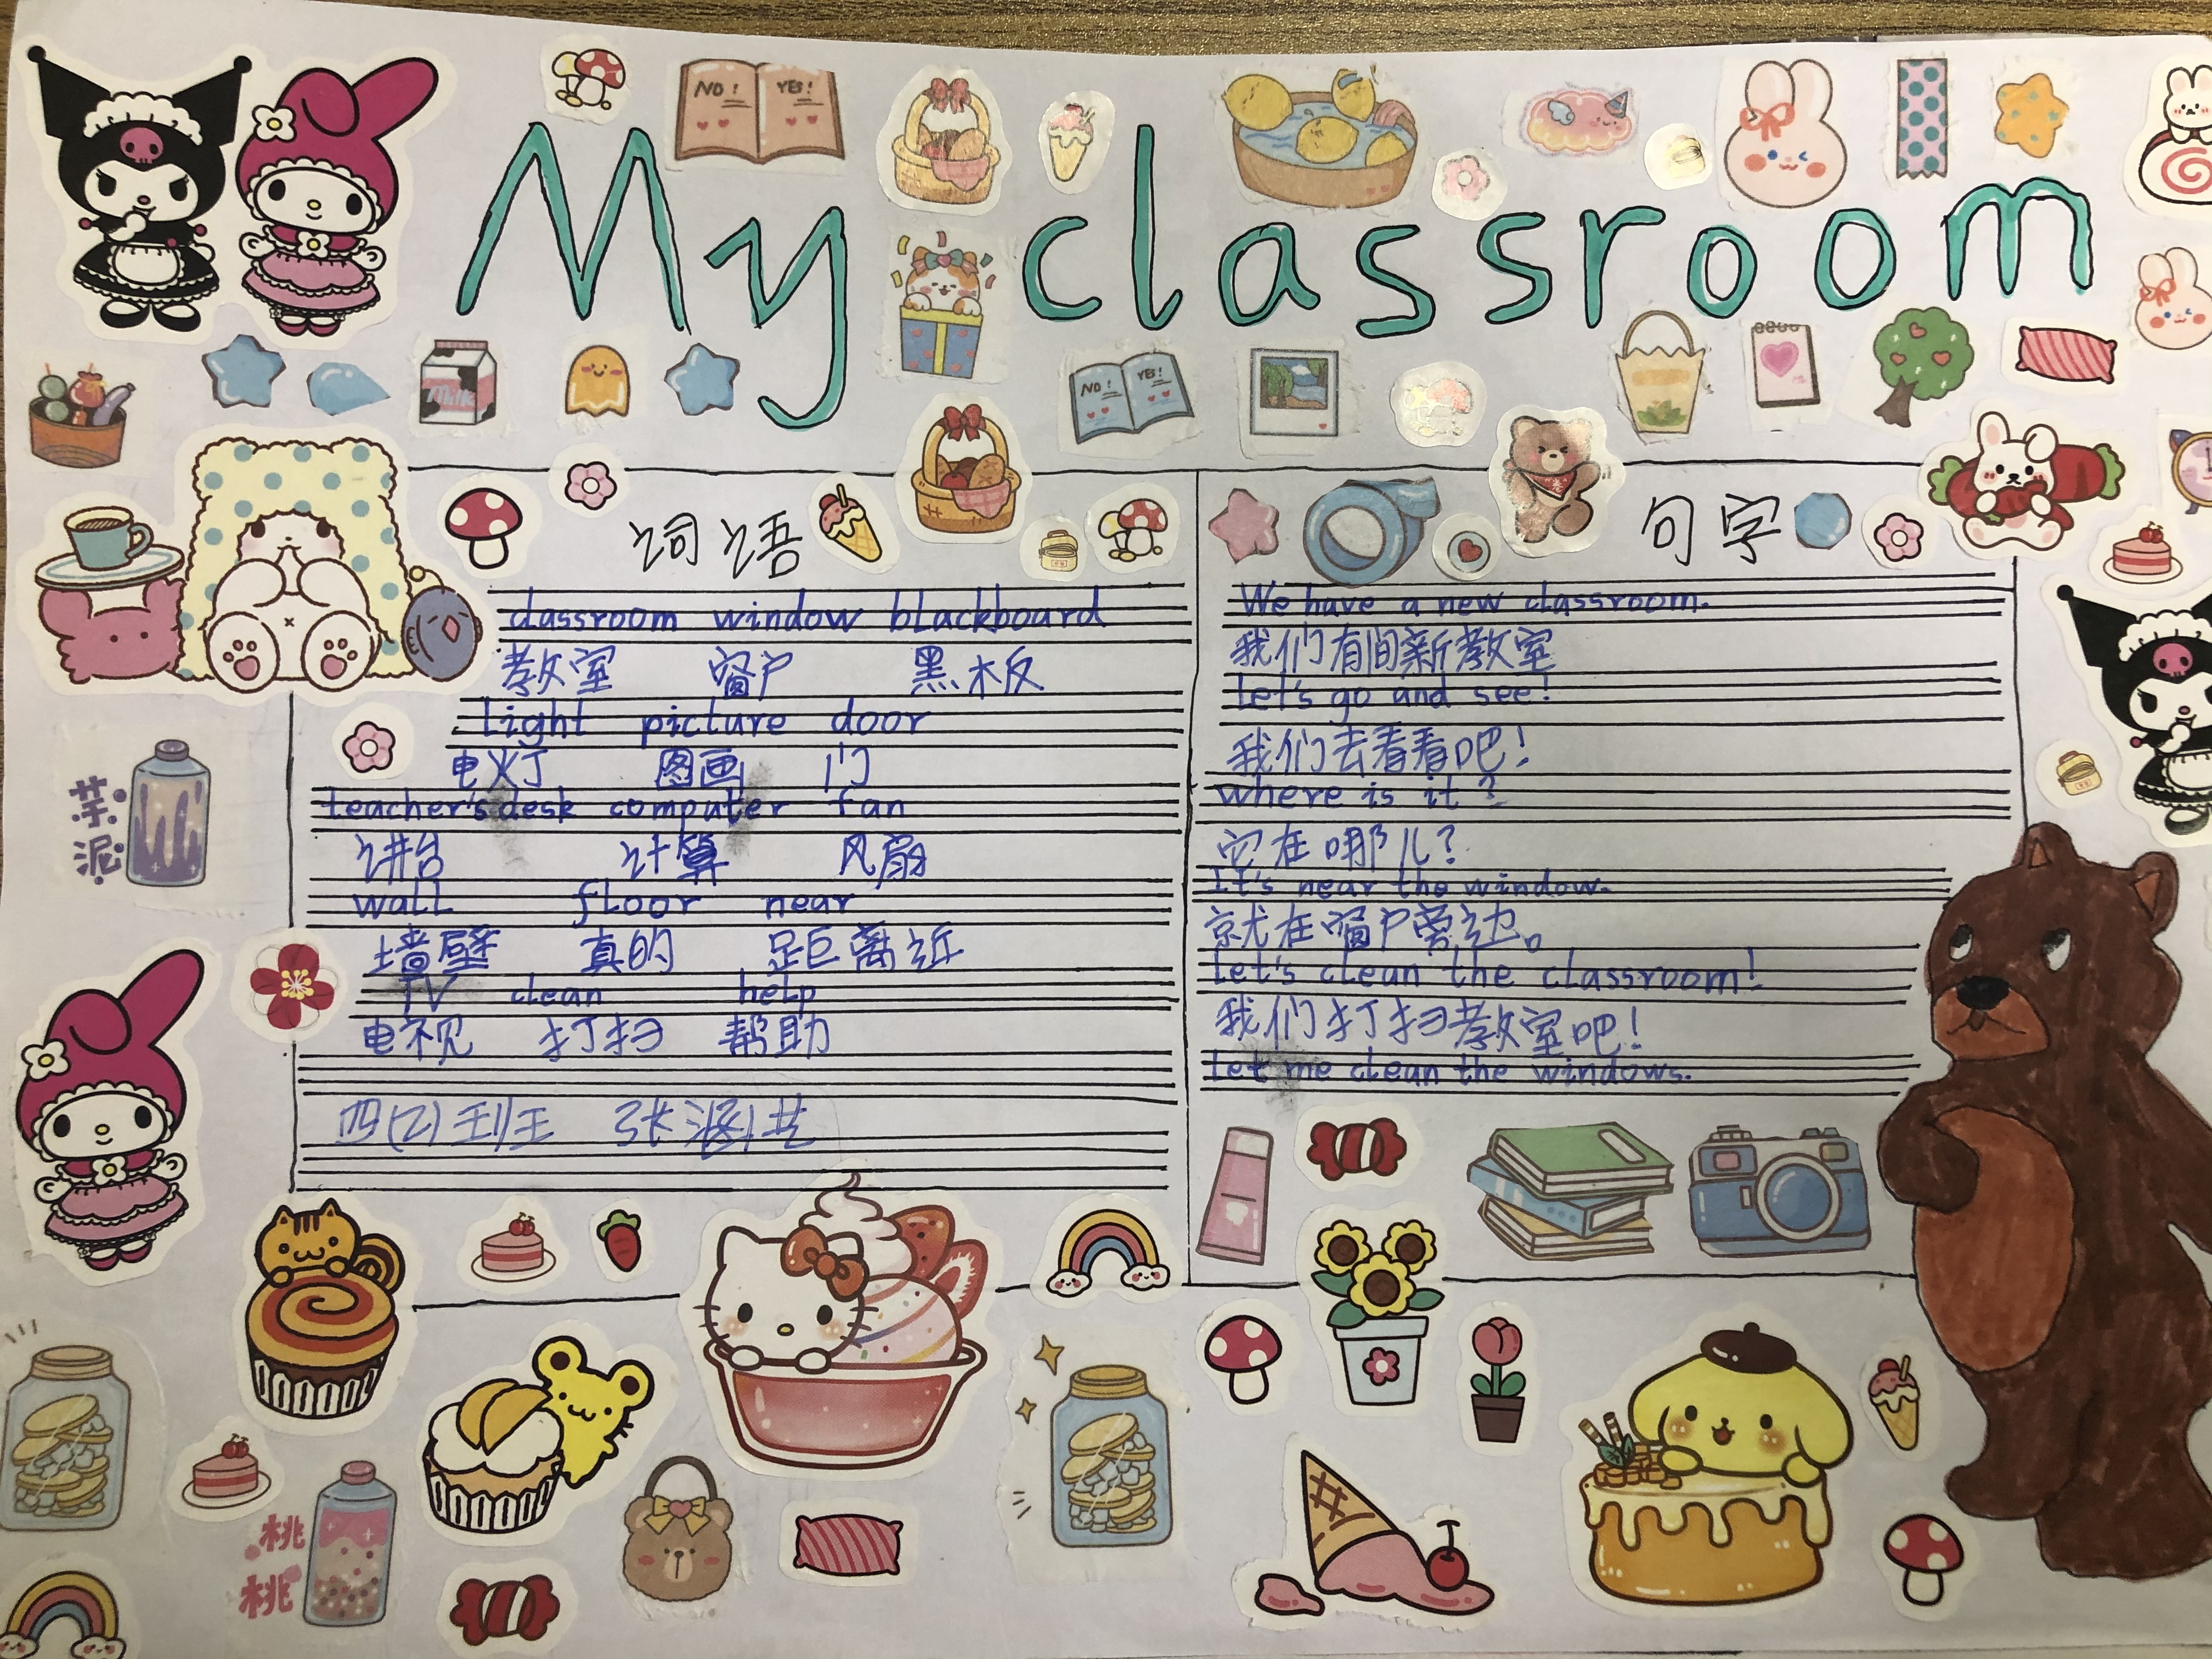 NO! YES!
My classroom
Milk
NO! YES!
词语
classroom window blackboard
教室 窗户 黑板
light picture door
电灯 图画 门
teacher's desk computer fan
讲台 计算 风扇
wall floor near
墙壁 真的 距离近
TV clean help
电视 打扫 帮助
四(2)
句字
We have a new classroom.
我们有间新教室
Let's go and see!
我们去看看吧!
where is it?
它在哪儿?
It's near the window.
就在窗户旁边。
Let's clean the classroom!
我们打扫教室吧!
Let me clean the windows.
芋泥
桃桃